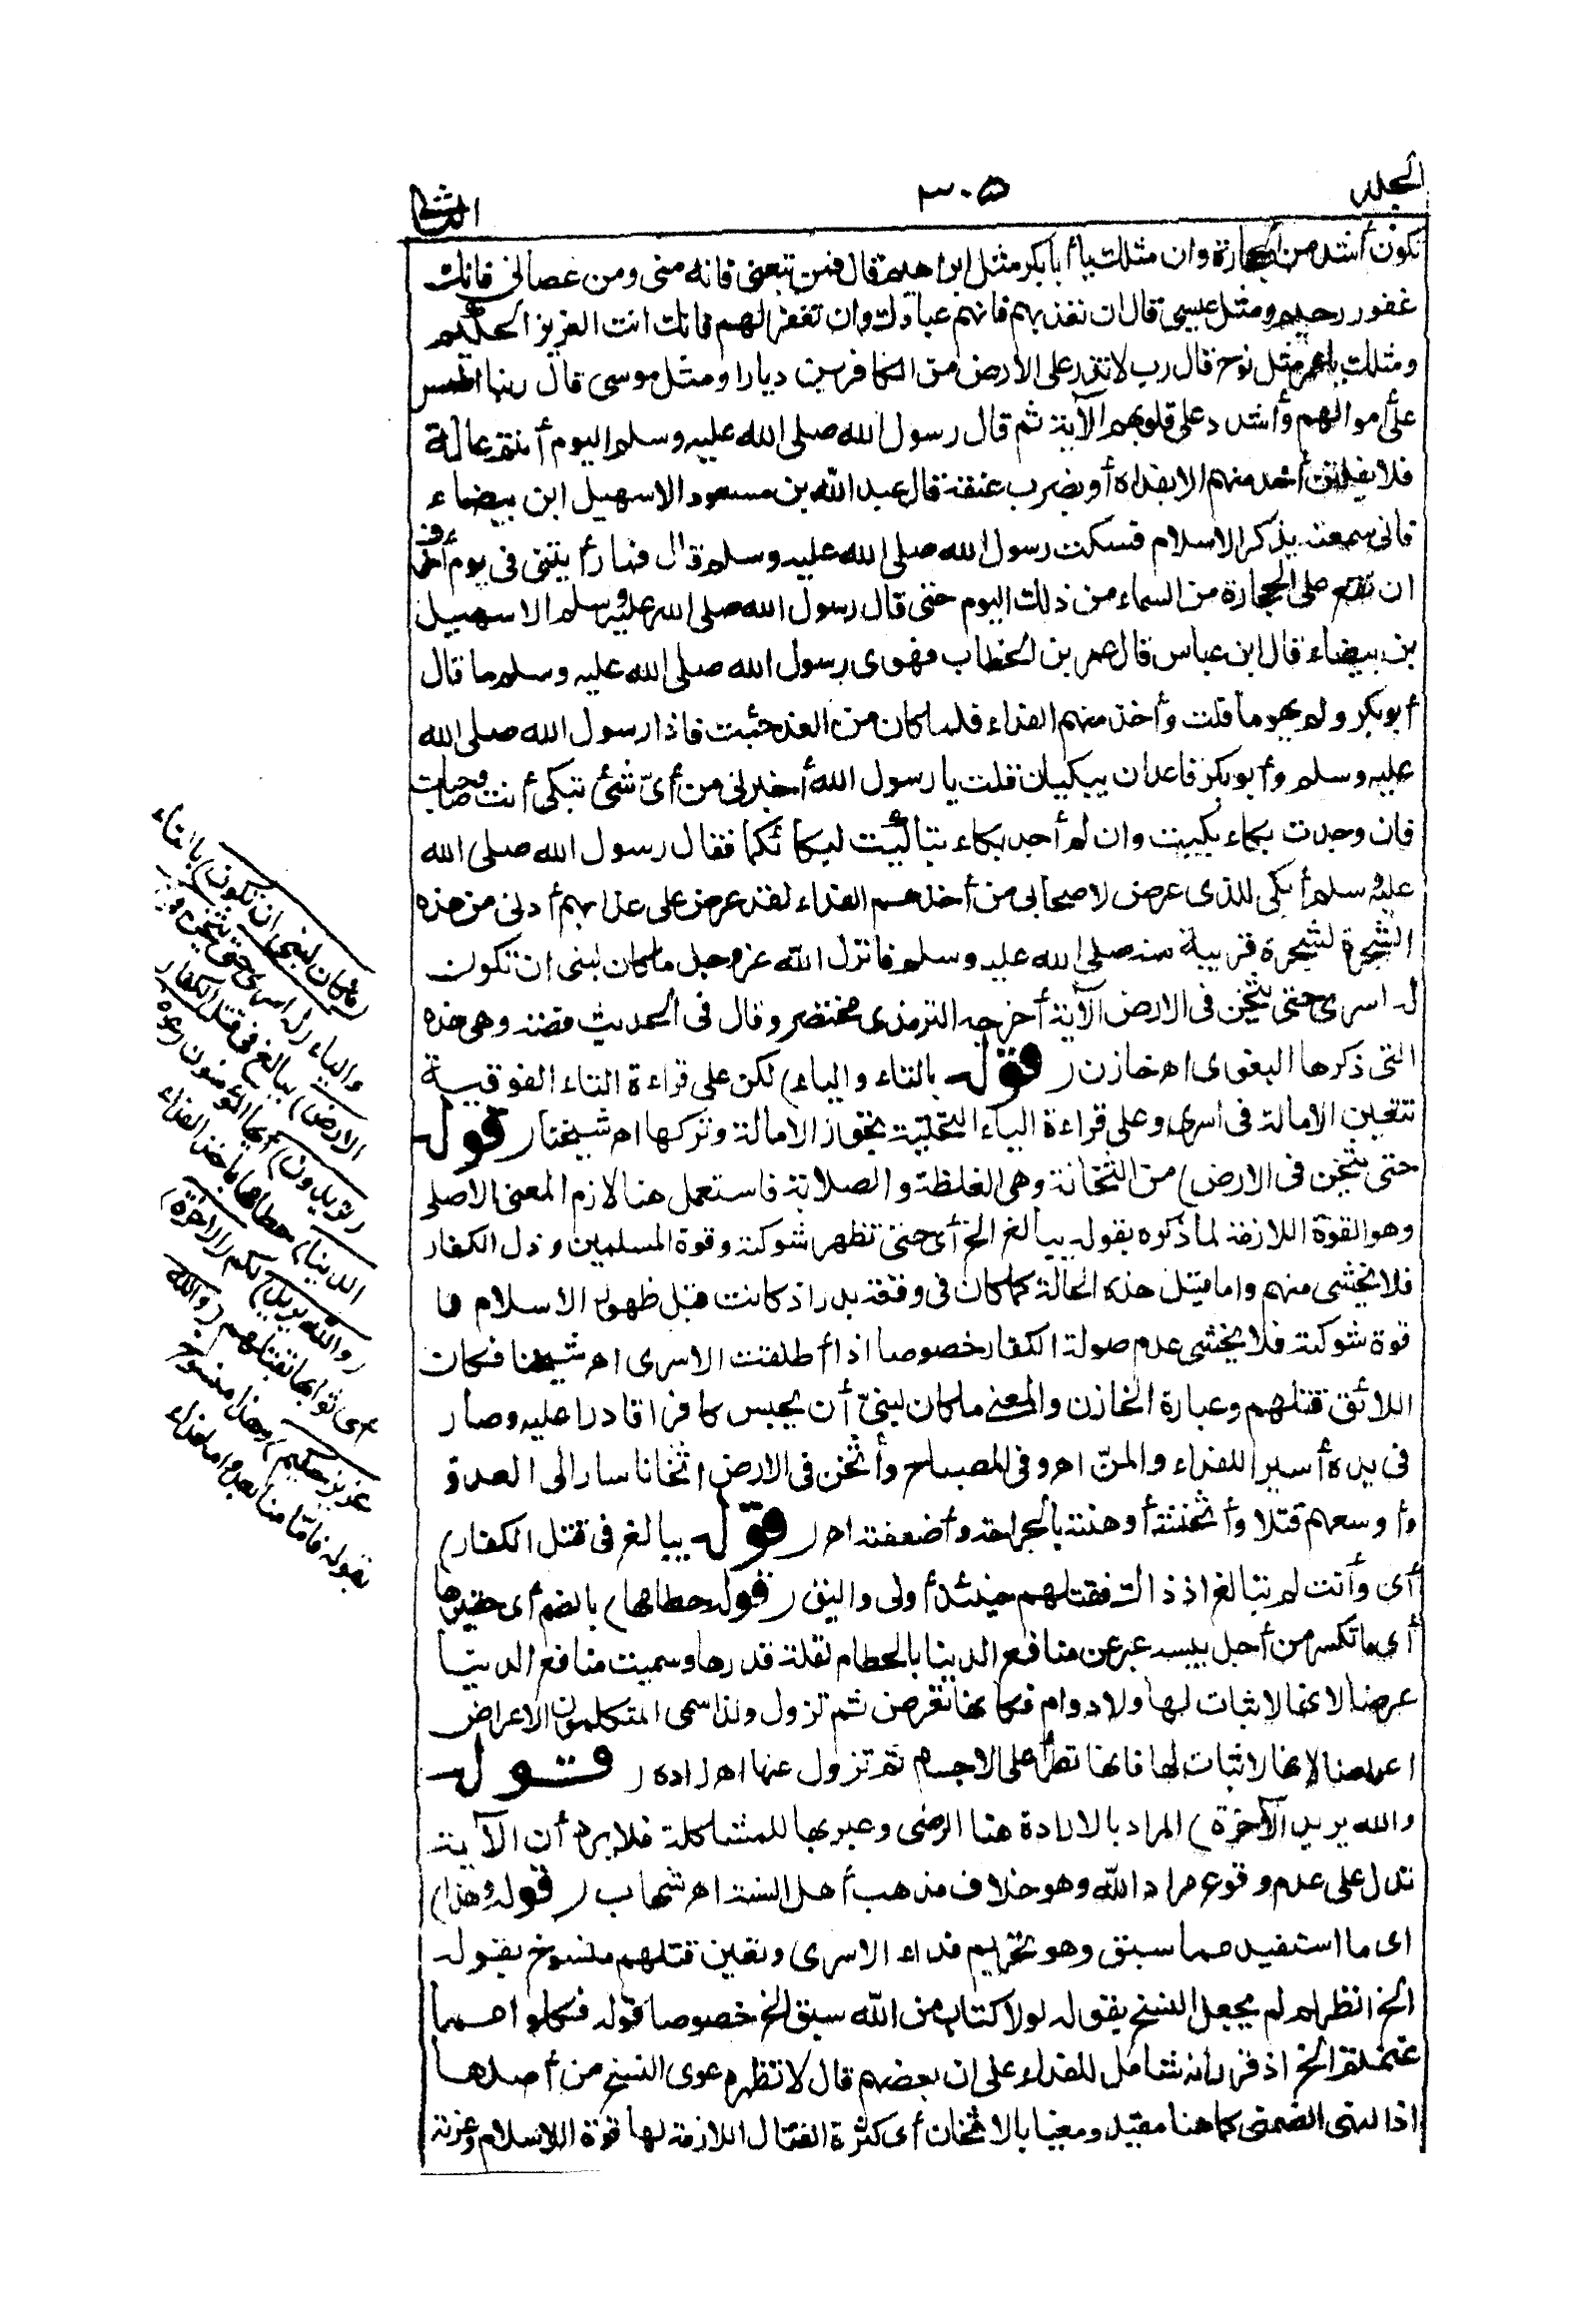 الجلد ٣٠٥ الثانى
تكون أشد من الحجارة وان مثلك يا أبا بكر مثل ابراهيم قال فمن تبعنى فانه منى ومن عصانى فانك
غفور رحيم ومثل عيسى قال ان تعذبهم فانهم عبادك وان تغفر لهم فانك انت العزيز الحكيم
ومثلك يا عمر مثل نوح قال رب لا تذر على الارض من الكافرين ديارا ومثل موسى قال ربنا اطمس
على أموالهم وأشدد على قلوبهم الآية ثم قال رسول الله صلى الله عليه وسلم اليوم أنتم عالة
فلا يفلتن أحد منهم الا بفداء أو بضرب عنقه قال عبد الله بن مسعود الا سهيل ابن بيضاء
فانى سمعته يذكر الاسلام فسكت رسول الله صلى الله عليه وسلم قال فما رأيتنى فى يوم أخوف
ان تقع على الحجارة من السماء من ذلك اليوم حتى قال رسول الله صلى الله عليه وسلم الا سهيل
بن بيضاء قال ابن عباس قال عمر بن الخطاب فهوى رسول الله صلى الله عليه وسلم ما قال
أبو بكر ولم يهو ما قلت وأخذ منهم الفداء فلما كان من الغد جئت فاذا رسول الله صلى الله
عليه وسلم وأبو بكر قاعدان يبكيان فقلت يا رسول الله أخبرنى من أىّ شئ تبكى أنت وصاحبك
فان وجدت بكاء بكيت وان لم أجد بكاء تباكيت لبكائكما فقال رسول الله صلى الله
عليه وسلم أبكى للذى عرض لاصحابى من أخذهم الفداء لقد عرض على عذابهم أدنى من هذه
الشجرة لشجرة قريبة منه صلى الله عليه وسلم فانزل الله عز وجل ما كان لنبى ان تكون
له اسرى حتى يثخن فى الارض الآية أخرجه الترمذى مختصر وقال فى الحديث قصة وهى هذه
التى ذكرها البغوى اه خازن (قوله بالتاء والياء) لكن على قراءة التاء الفوقية
تتعين الامالة فى اسرى وعلى قراءة الياء التحتية تجوز الامالة وتركها اه شيخنا (قوله
حتى يثخن فى الارض) من الثخانة وهى الغلظة والصلابة فاستعمل هنا لازم المعنى الاصلى
وهو القوة اللازمة لما ذكره بقوله يبالغ الخ أى حتى تظهر شوكته وقوة المسلمين وذل الكفار
فلا يخشى منهم واما قبل هذه الحالة كما كان فى وقعة بدر اذ كانت قبل ظهور الاسلام
قوة شوكته فلا يخشى عدم صولة الكفار خصوصا اذا أطلقت الاسرى اه شيخنا فكان
اللائق قتلهم وعبارة الخازن والمعنى ما كان لنبىّ أن يحبس كافرا قادرا عليه وصار
فى يده أسيرا للفداء والمنّ اه وفى المصباح وأثخن فى الارض اثخانا سار الى العدو
وأوسعهم قتلا وأثخنته أوهنته بالجراحة وأضعفته اه (قوله يبالغ فى قتل الكفار)
أى وأنت لم تبالغ اذ ذاك فقتلهم حينئذ أولى وأليق (قوله حطامها) بالضم أى حقيرها
أى ما تكسر من أجل يبسه عبر عن منافع الدنيا بالحطام لقلة قدرها وسميت منافع الدنيا
عرضا لانها لا ثبات لها ولا دوام فكانها تعرض ثم تزول ولذا سمى المتكلمون الاعراض
اعراضا لانها لا ثبات لها فانها تطرأ على الاجسام ثم تزول عنها اه زاده (قوله
والله يريد الآخرة) المراد بالارادة هنا الرضى وعبر بها للمشاكلة فلا يرد أن الآية
تدل على عدم وقوع مراد الله وهو خلاف مذهب أهل السنة اه شهاب (قوله وهذا)
اى ما استفيد مما سبق وهو تحريم فداء الاسرى وتعين قتلهم منسوخ بقوله
الخ انظر لم لم يجعل النسخ بقوله لولا كتاب من الله سبق الخ خصوصا قوله فكلوا مما
غنمتم الخ اذ فرد انه شامل للفداء على ان بعضهم قال لا تظهر دعوى النسخ من أصلها
اذ النهى الضمنى كما هنا مقيد ومغيا بالاثخان أى كثرة القتال اللازمة لها قوة الاسلام وعزته
(ما كان لنبى ان تكون) بالتاء
والياء (له اسرى حتى يثخن فى
الارض) يبالغ فى قتل الكفار
(تريدون) أيها المؤمنون (عرض
الدنيا) حطامها بأخذ الفداء
(والله يريد) لكم (الآخرة)
أى ثوابها بقتلهم (والله
عزيز حكيم) وهذا منسوخ
بقوله فامّا منا بعد واما فداء